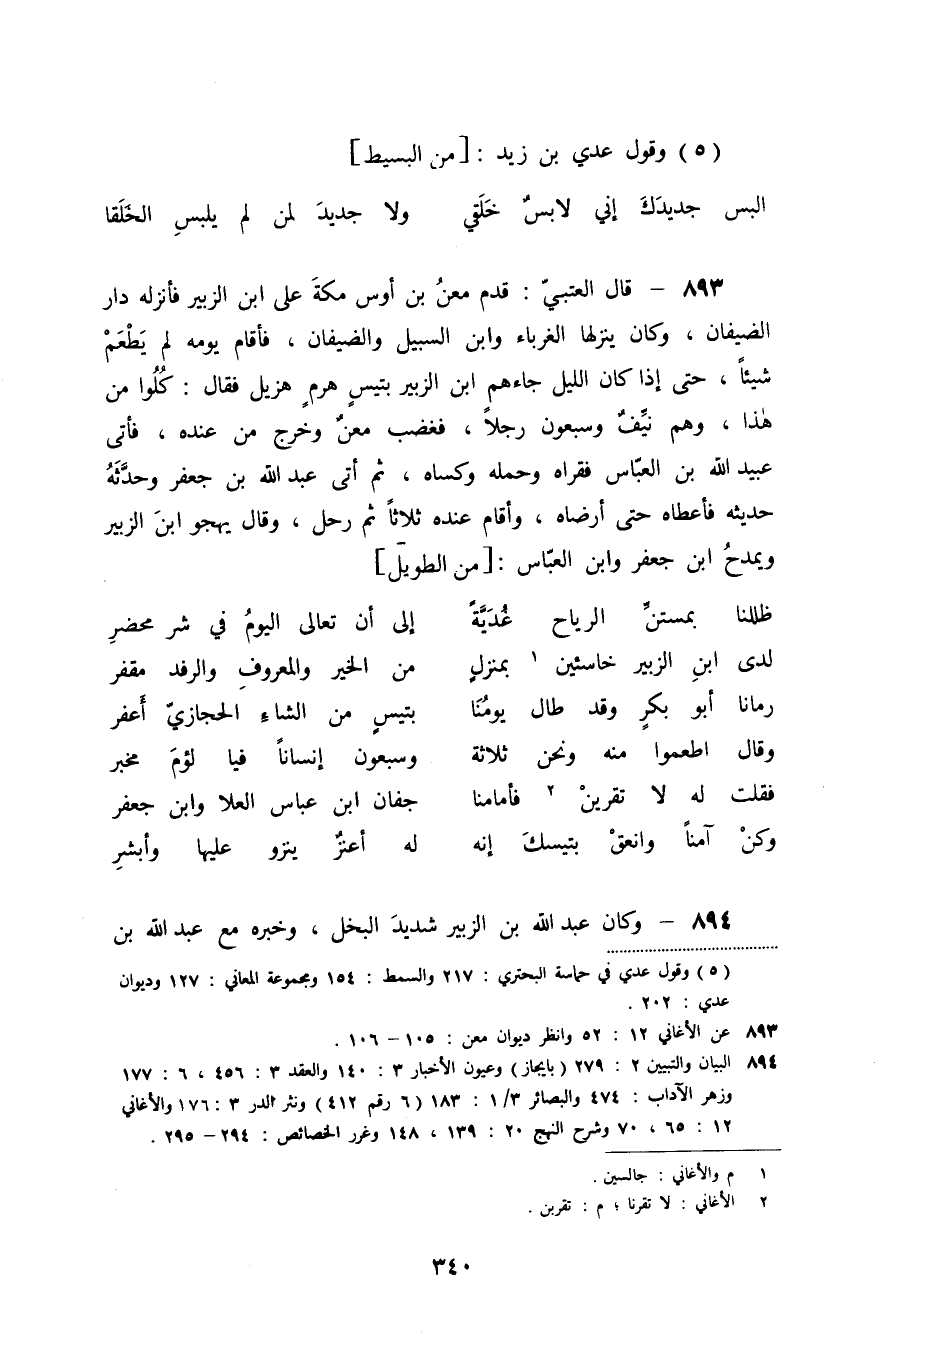 (٥) وقول عدي بن زيد : [من البسيط]
البس جديدَكَ إني لابسٌ خَلَقي ولا جديدَ لمن لم يلبسِ الخَلَقا
٨٩٣ – قال العتبيّ : قدم معنُ بن أوس مكةَ على ابن الزبير فأنزله دار
الضيفان ، وكان ينزلها الغرباء وابن السبيل والضيفان ، فأقام يومه لم يَطْعَمْ
شيئاً ، حتى إذا كان الليل جاءهم ابن الزبير بتيسٍ هرمٍ هزيل فقال : كُلُوا من
هٰذا ، وهم نيِّفٌ وسبعون رجلاً ، فغضب معنٌ وخرج من عنده ، فأتى
عبيد الله بن العبّاس فقراه وحمله وكساه ، ثم أتى عبد الله بن جعفر وحدَّثَهُ
حديثه فأعطاه حتى أرضاه ، وأقام عنده ثلاثاً ثم رحل ، وقال يهجو ابنَ الزبير
ويمدحُ ابن جعفر وابن العبّاس : [من الطويل]
ظللنا بمستنِّ الرياح غُدَيَّةً إلى أن تعالى اليومُ في شر محضرِ
لدى ابنِ الزبير خاسئين ١ بمنزلٍ من الخير والمعروفِ والرفد مقفر
رمانا أبو بكرٍ وقد طال يومُنَا بتيسٍ من الشاءِ الحجازيّ أَعفر
وقال اطعموا منه ونحن ثلاثة وسبعون إنساناً فيا لؤمَ مخبر
فقلت له لا تقرينْ ٢ فأمامنا جفان ابن عباس العلا وابن جعفر
وكنْ آمناً وانعقْ بتيسكَ إنه له أعنزٌ ينزو عليها وأبشرِ
٨٩٤ – وكان عبد الله بن الزبير شديدَ البخل ، وخبره مع عبد الله بن
(٥) وقول عدي في حماسة البحتري : ٢١٧ والسمط : ١٥٤ ومجموعة المعاني : ١٢٧ وديوان
عدي : ٢٠٢ .
٨٩٣ عن الأغاني ١٢ : ٥٢ وانظر ديوان معن : ١٠٥ – ١٠٦ .
٨٩٤ البيان والتبيين ٢ : ٢٧٩ (بايجاز) وعيون الأخبار ٣ : ١٤٠ والعقد ٣ : ٤٥٦ ، ٦ : ١٧٧
وزهر الآداب : ٤٧٤ والبصائر ١/٣ : ١٨٣ (٦ رقم ٤١٢) ونثر الدر ٣ : ١٧٦ والأغاني
١٢ : ٦٥ ، ٧٠ وشرح النهج ٢٠ : ١٣٩ ، ١٤٨ وغرر الخصائص : ٢٩٤ – ٢٩٥ .
١ م والأغاني : جالسين .
٢ الأغاني : لا تقرنا ؛ م : تقربن .
٣٤٠